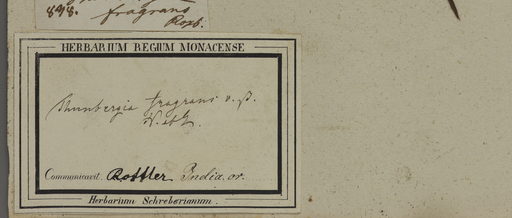 898. fragrans
Roxb.
HERBARIUM REGIUM MONACENSE
Thunbergia fragrans v. β.
Communicavit. Rottler India. or.
Herbarium Schreberianum.